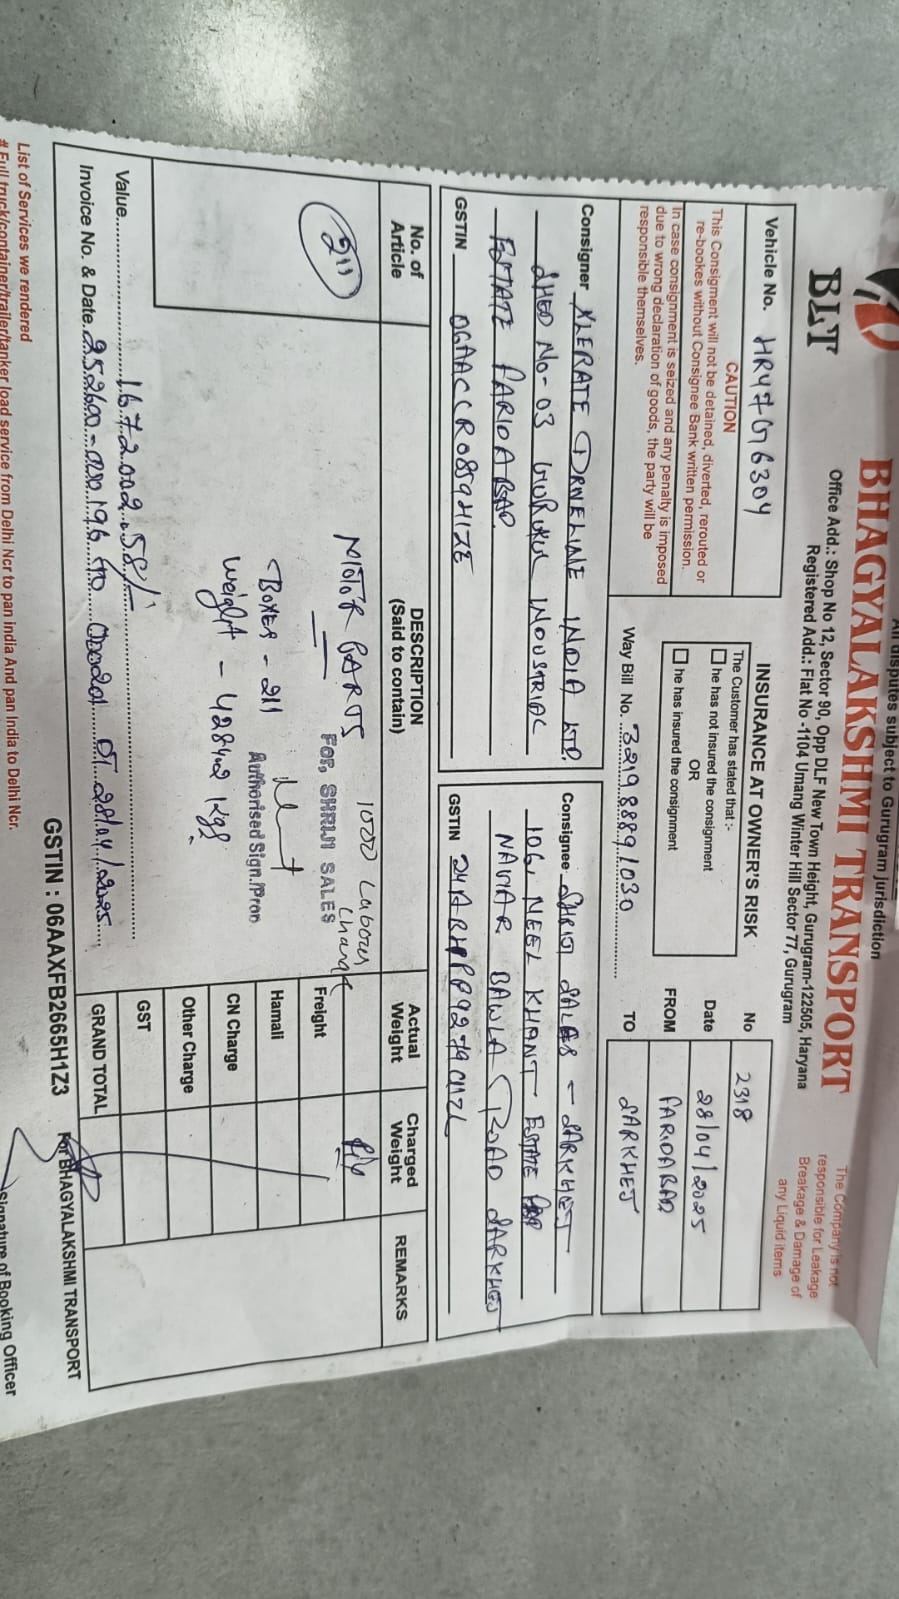 All disputes subject to Gurugram jurisdiction
BHAGYALAKSHMI TRANSPORT
BLT
Office Add.: Shop No 12, Sector 90, Opp DLF New Town Height, Gurugram-122505, Haryana
Registered Add.: Flat No -1104 Umang Winter Hill Sector 77, Gurugram
The Company is not
responsible for Leakage
Breakage & Damage of
any Liquid items
Vehicle No. HR47G6304
CAUTION
This Consigment will not be detained, diverted, rerouted or
re-bookes without Consignee Bank written permission.
In case consignment is seized and any penalty is imposed
due to wrong declaration of goods, the party will be
responsible themselves.
INSURANCE AT OWNER'S RISK
The Customer has stated that :-
he has not insured the consignment
OR
he has insured the consignment
Way Bill No. 321988891030
No 2318
Date 28/04/2025
FROM FARIDABAD
TO SARKHEJ
Consigner XLERATE DRIVELINE INDIA LTD.
SHED NO-03 GURUKUL INDUSTRIAL
ESTATE FARIDABAD
GSTIN 06AACCR0859H1ZE
Consignee SHRIJI SALES - SARKHEJ
106, NEEL KHANT ESTATE
BAWLA ROAD SARKHEJ
GSTIN
No. of
Article
DESCRIPTION
(Said to contain)
Actual
Weight
Charged
Weight
REMARKS
211
MOTOR PARTS
1000 Labour
Charge
FOR, SHRIJI SALES
Boxes - 211
Authorised Sign./Prop.
Weight - 4284.2 kgs
Freight
Hamali
CN Charge
Other Charge
GST
GRAND TOTAL
Value 1672002.58/-
Invoice No. & Date. 28/04/2025
GSTIN : 06AAXFB2665H1Z3
For BHAGYALAKSHMI TRANSPORT
List of Services we rendered
# Full truck/container/trailer/tanker load service from Delhi Ncr to pan india And pan India to Delhi Ncr.
Signature of Booking Officer